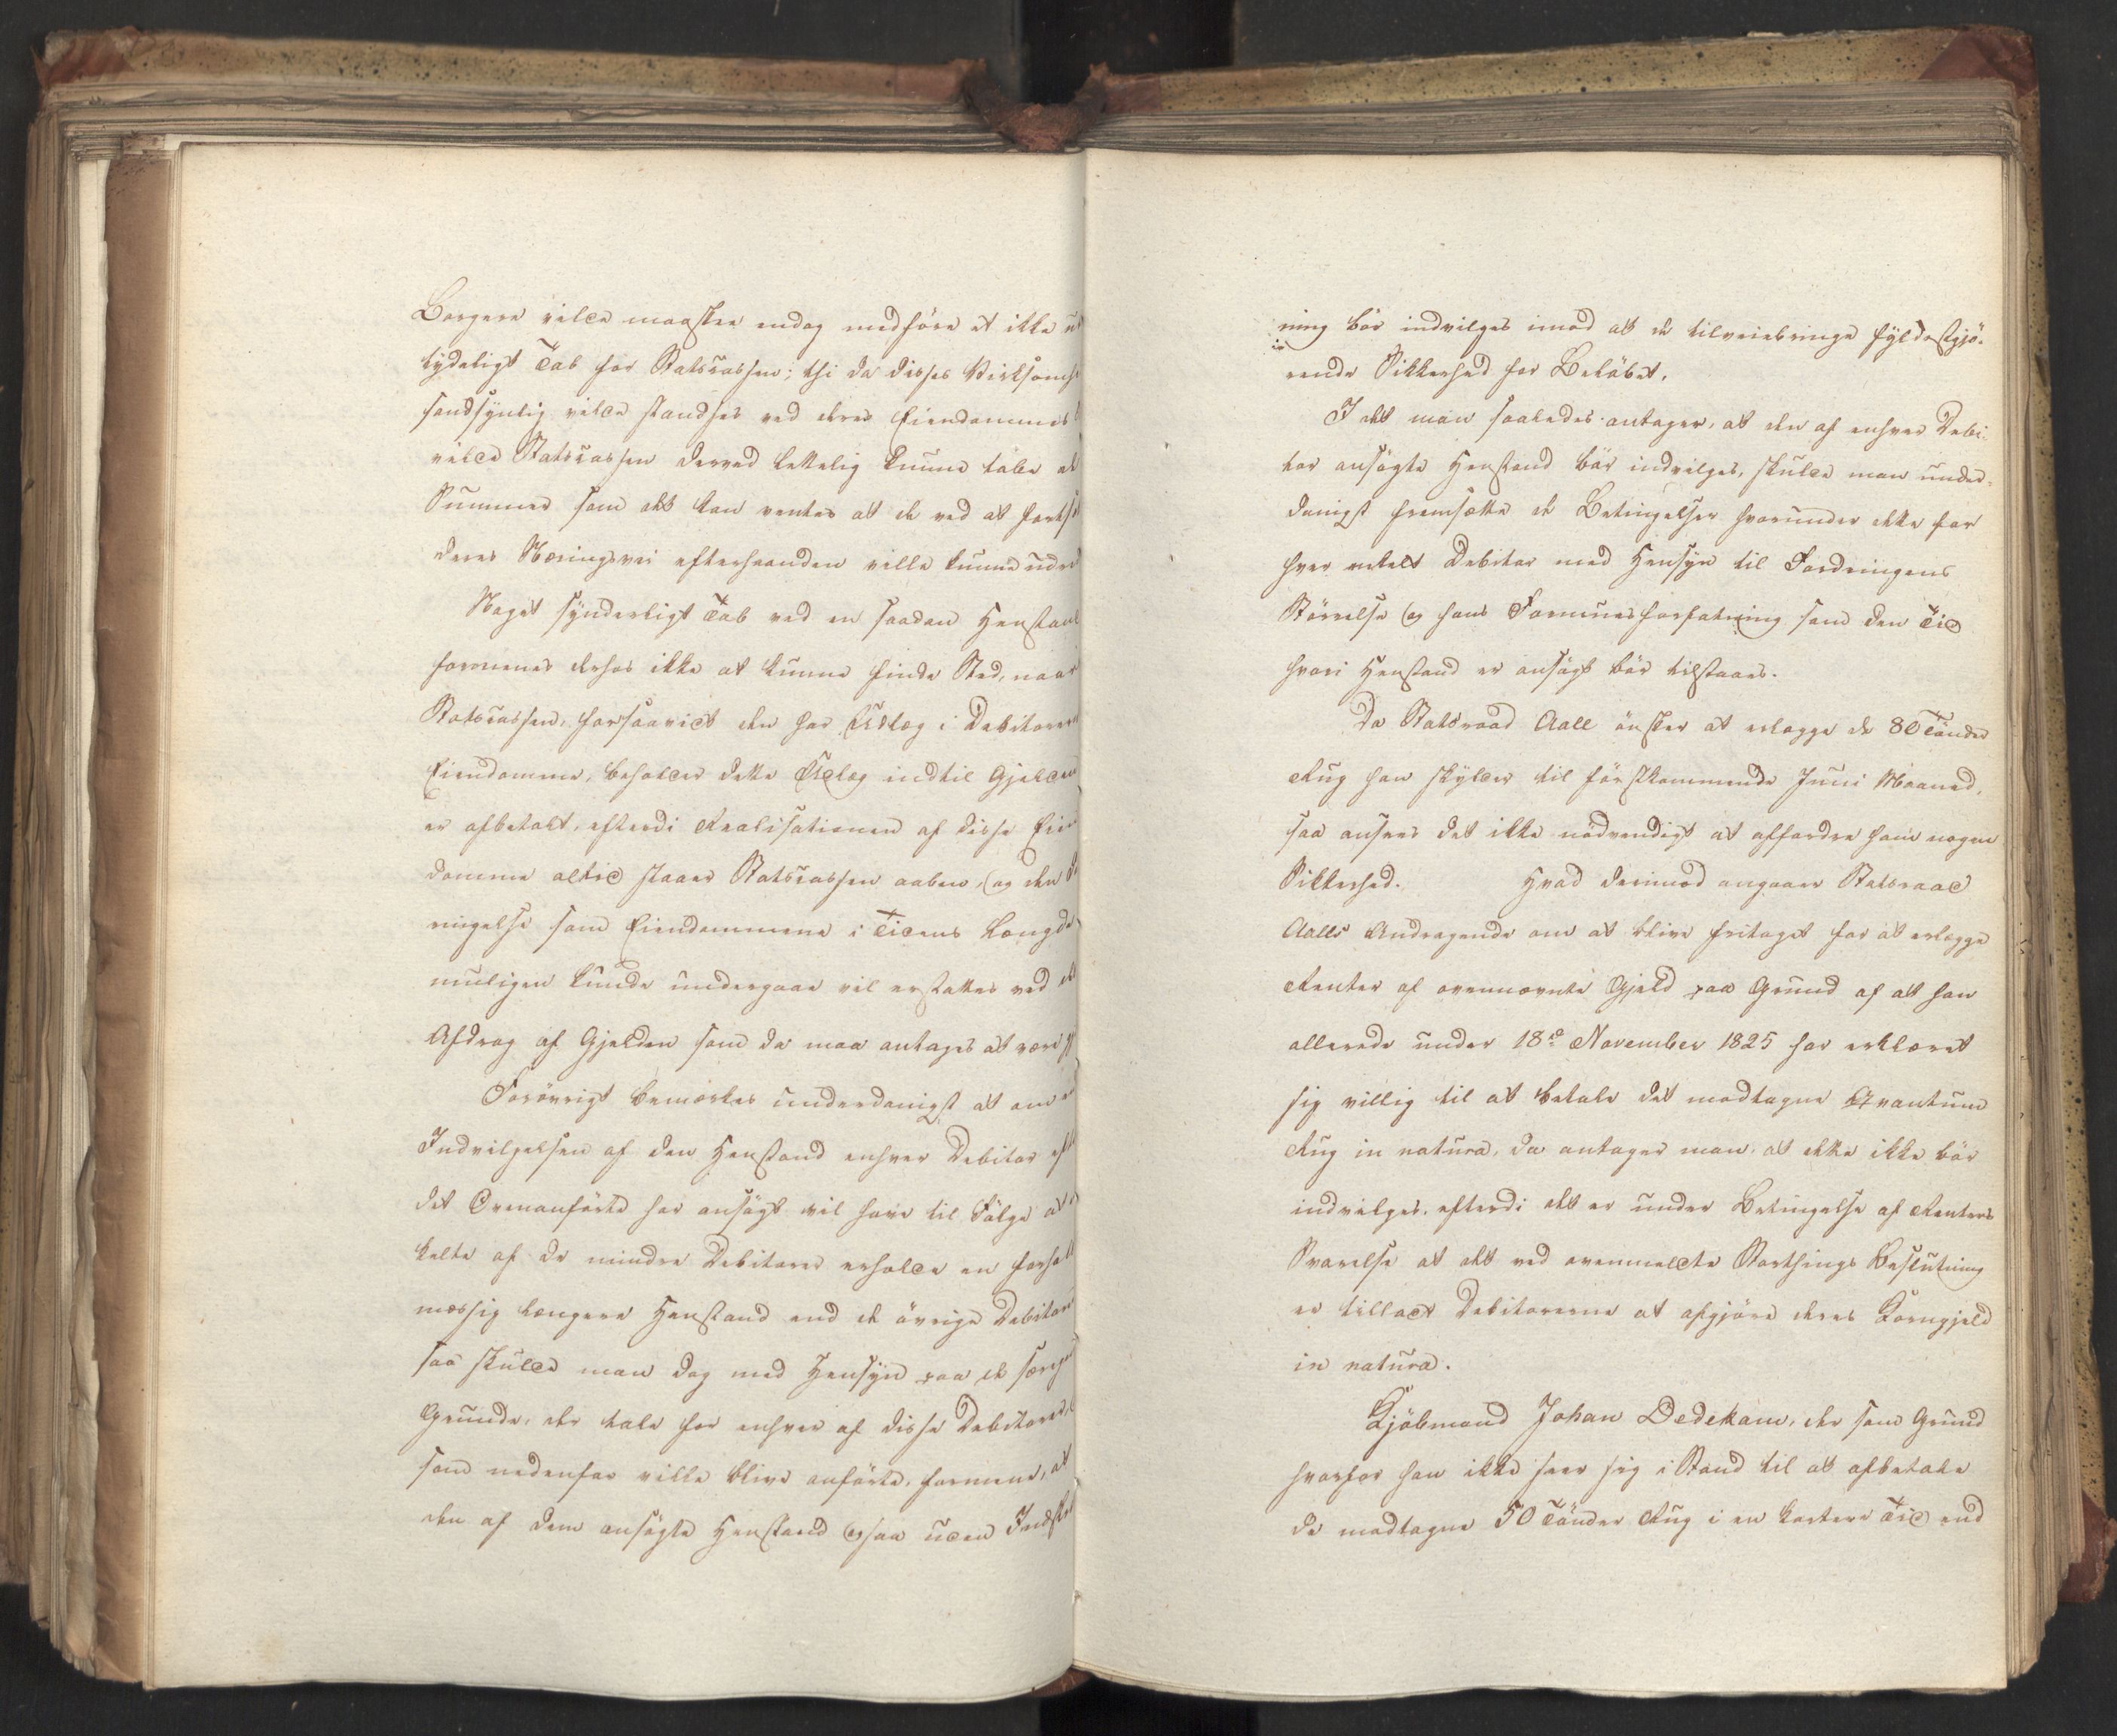 Borgere vilde maaskee endog medföre et ikke u
tydeligt Tab for Statscassen; thi da disses Virksomh
sandsynlig vilde standses ved deres Eiendommes
vilde Statscassen derved lettelig kunne tabe de
Summer som det kan ventes at de ved at fortsæ
deres Næringsvei efterhaanden ville kunne udre
Noget synderligt Tab ved en saadan Henstand
formenes derhos ikke at kunne finde Sted, naar
Statscassen, forsaavidt den har Udlæg i Debitorer
Eiendomme, beholder dette Udlæg indtil Gjelden
er afbetalt, efterdi Realisationen af disse Eien
domme altid staaer Statscassen aaben, og den
ringelse som Eiendommene i Tidens Længde
muligen kunde undergaae vil erstattes ved de
Afdrag af Gjelden som da maa antages at være
Forövrigt bemærkes underdanigst at om
Indvilgelsen af den Henstand enhver Debitor eft
det Ovenanförte har ansögt vil have til Fölge at
kelte af de mindre Debitorer erholde en forhol
mæssig længere Henstand end de övrige Debitor
saa skulde man dog med Hensyn paa de særegne
Grunde, der tale for enhver af disse Debitorer,
som nedenfor ville blive anförte, formene, at
den af dem ansögte Henstand ogsaa uden Indskr
ning bör indvilges imod at de tilveiebringe fyldestgjö-
rende Sikkerhed for Belöbet.
I det man saaledes antager, at den af enhver Debi-
tor ansögte Henstand bör indvilges, skulde man under-
danigst fremsætte de Betingelser hvorunder dette for
hver enkelt Debitor med Hensyn til Fordringens
Störrelse og hans Formuesforfatning samt den Tid
hvori Henstand er ansögt bör tilstaaes.
Da Statsraad Aall önsker at erlægge de 80 Tönder
Rug han skylder til förstkommende Juni Maaned,
saa ansees det ikke nödvendigt at affordre ham nogen
Sikkerhed. Hvad derimod angaaer Statsraad
Aalls Andragende om at blive fritaget for at erlægge
Renter af ovennævnte Gjeld paa Grund af at han
allerede under 18de November 1825 har erklæret
sig villig til at betale det modtagne Qvantum
Rug in natura, da antager man, at dette ikke bör
indvilges, efterdi det er under Betingelse af Renters
Svarelse at det ved ovenmeldte Storthings Beslutning
er tilladt Debitorerne at afgjöre deres Korngjeld
in natura.
Kjöbmand Johan Dedekam, der som Grund
hvorfor han ikke seer sig i Stand til at afbetale
de modtagne 50 Tönder Rug i en kortere Tid end